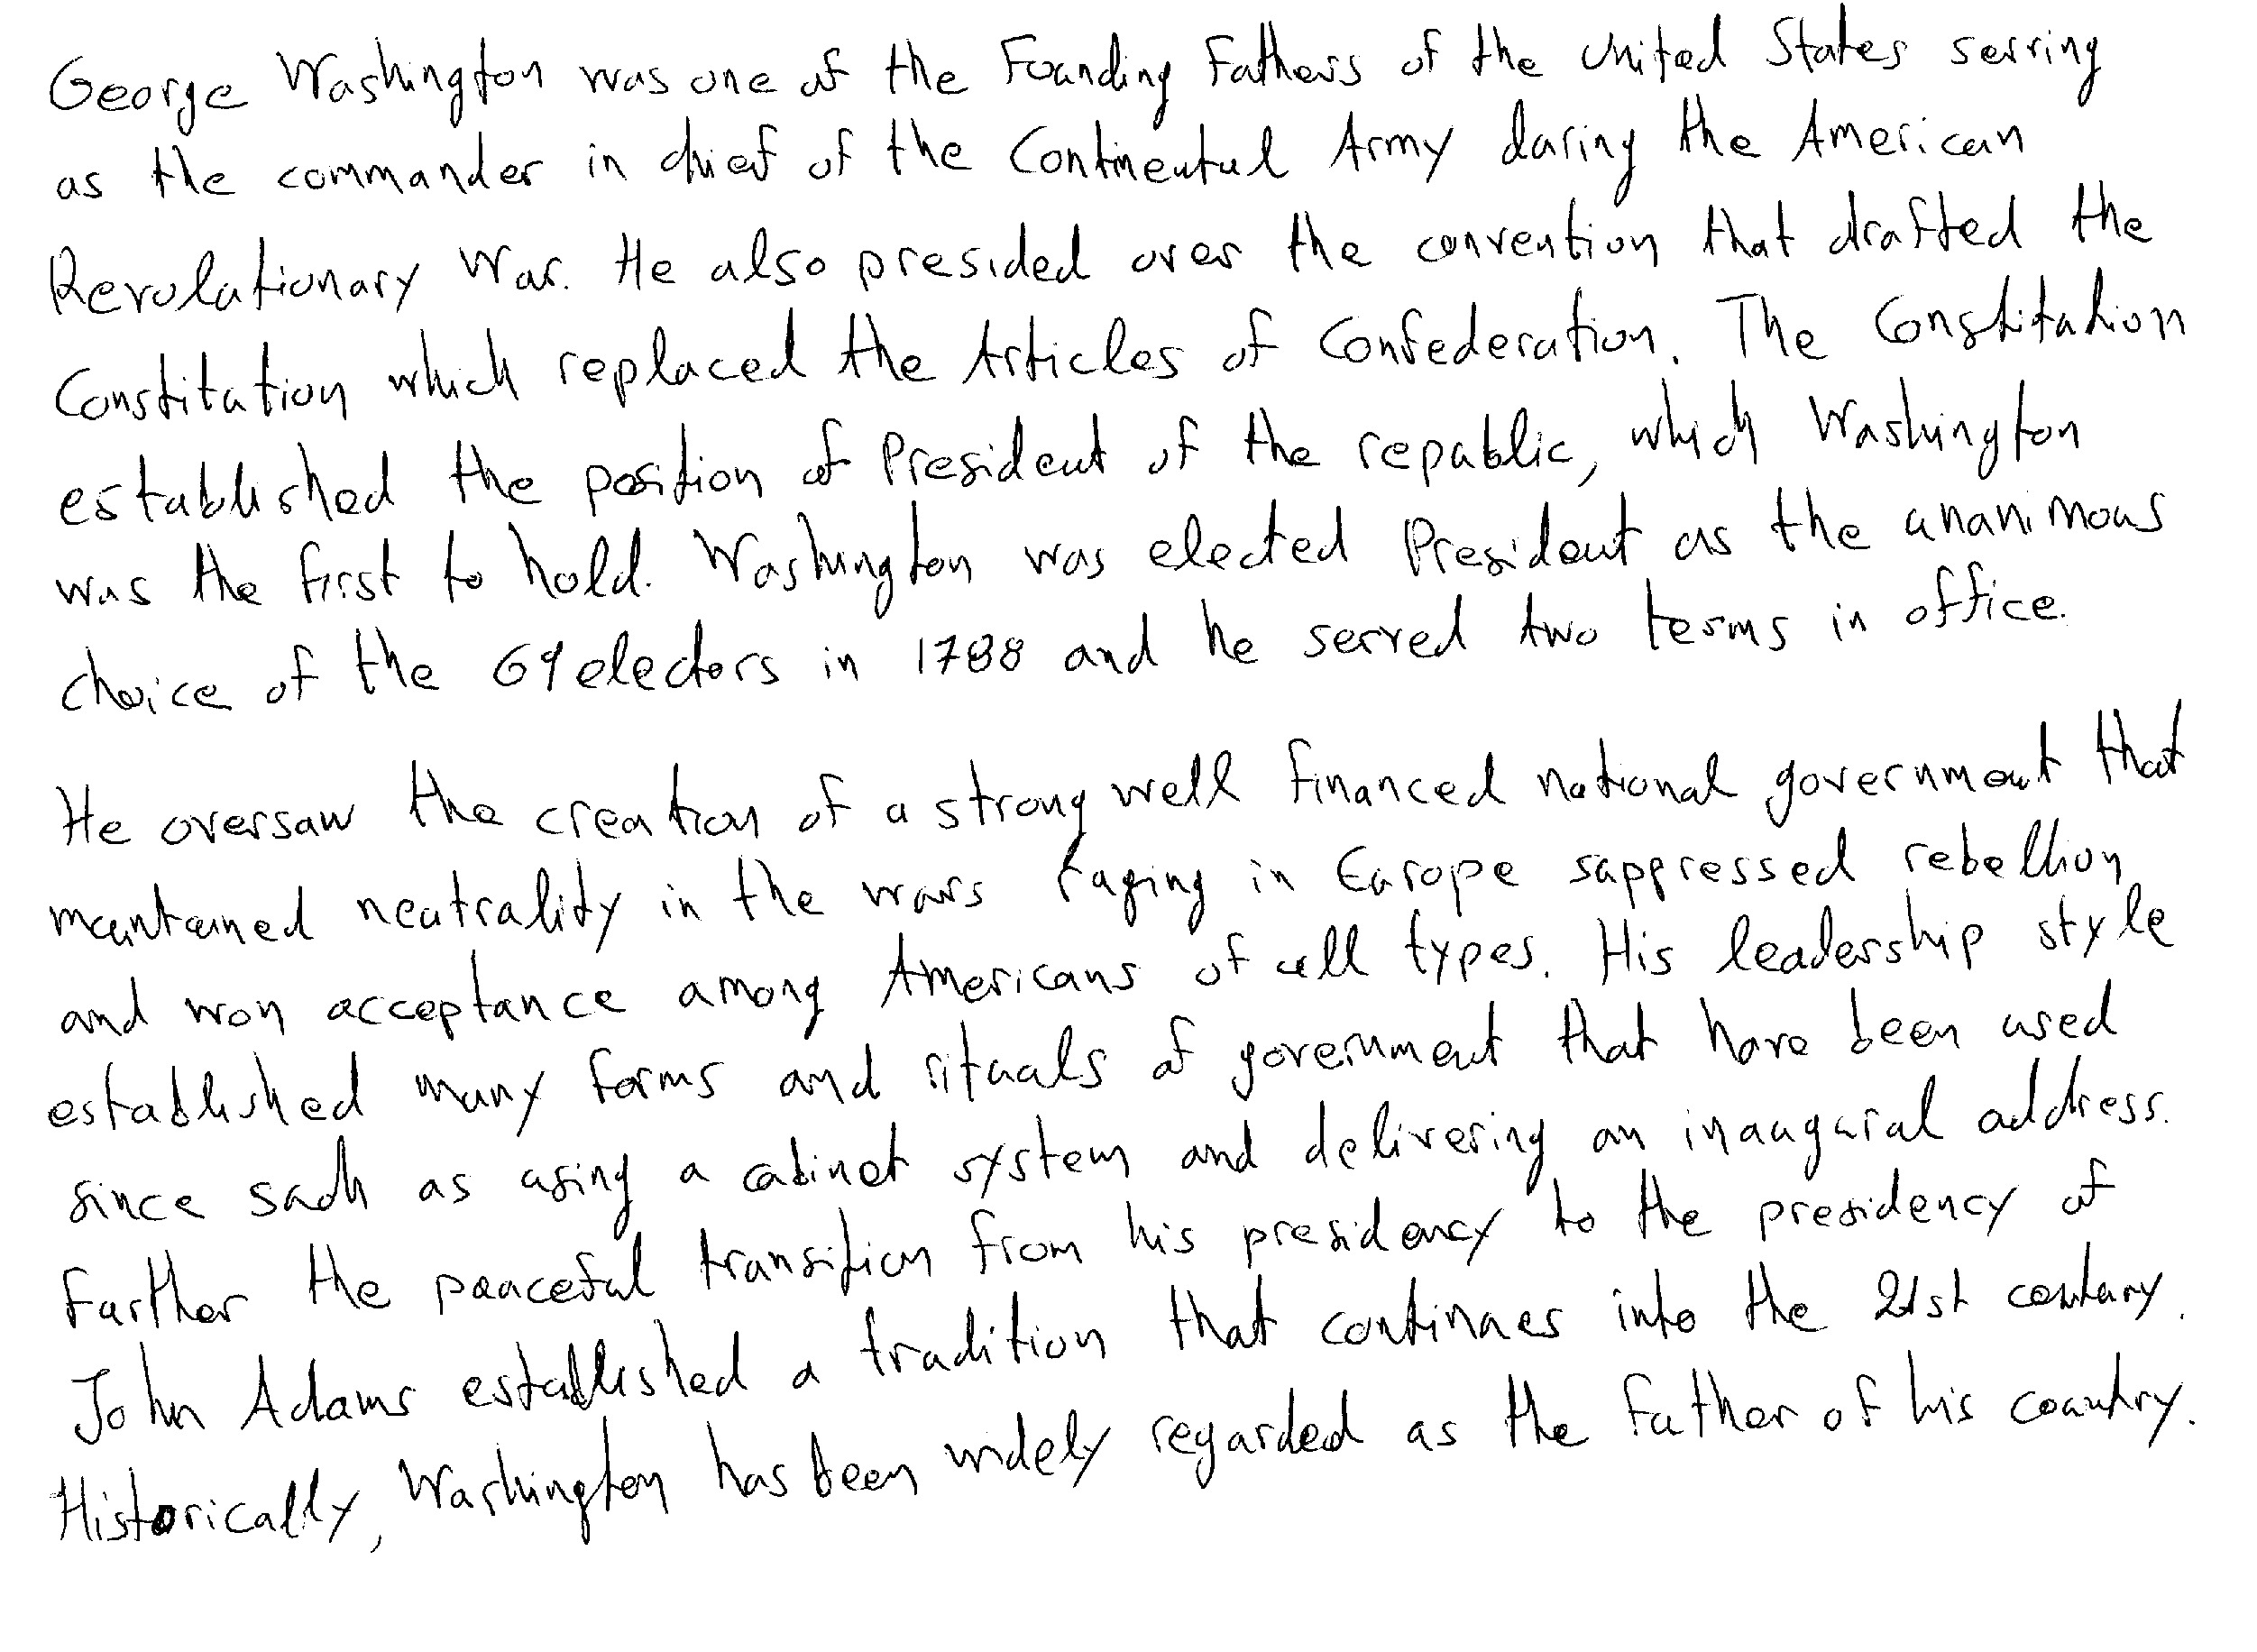 George Washington was one of the Founding Fathers of the United States serving
as the commander in chief of the Continental Army during the American
Revolutionary War. He also presided over the convention that drafted the
Constitution which replaced the Articles of Confederation. The Constitution
established the position of President of the republic, which Washington
was the first to hold. Washington was elected President as the unanimous
choice of the 69 electors in 1788 and he served two terms in office.
He oversaw the creation of a strong well financed national government that
maintained neutrality in the wars raging in Europe suppressed rebellion
and won acceptance among Americans of all types. His leadership style
established many forms and rituals of government that have been used
since such as using a cabinet system and delivering an inaugural address.
Further the peaceful transition from his presidency to the presidency of
John Adams established a tradition that continues into the 21st century.
Historically, Washington has been widely regarded as the father of his country.